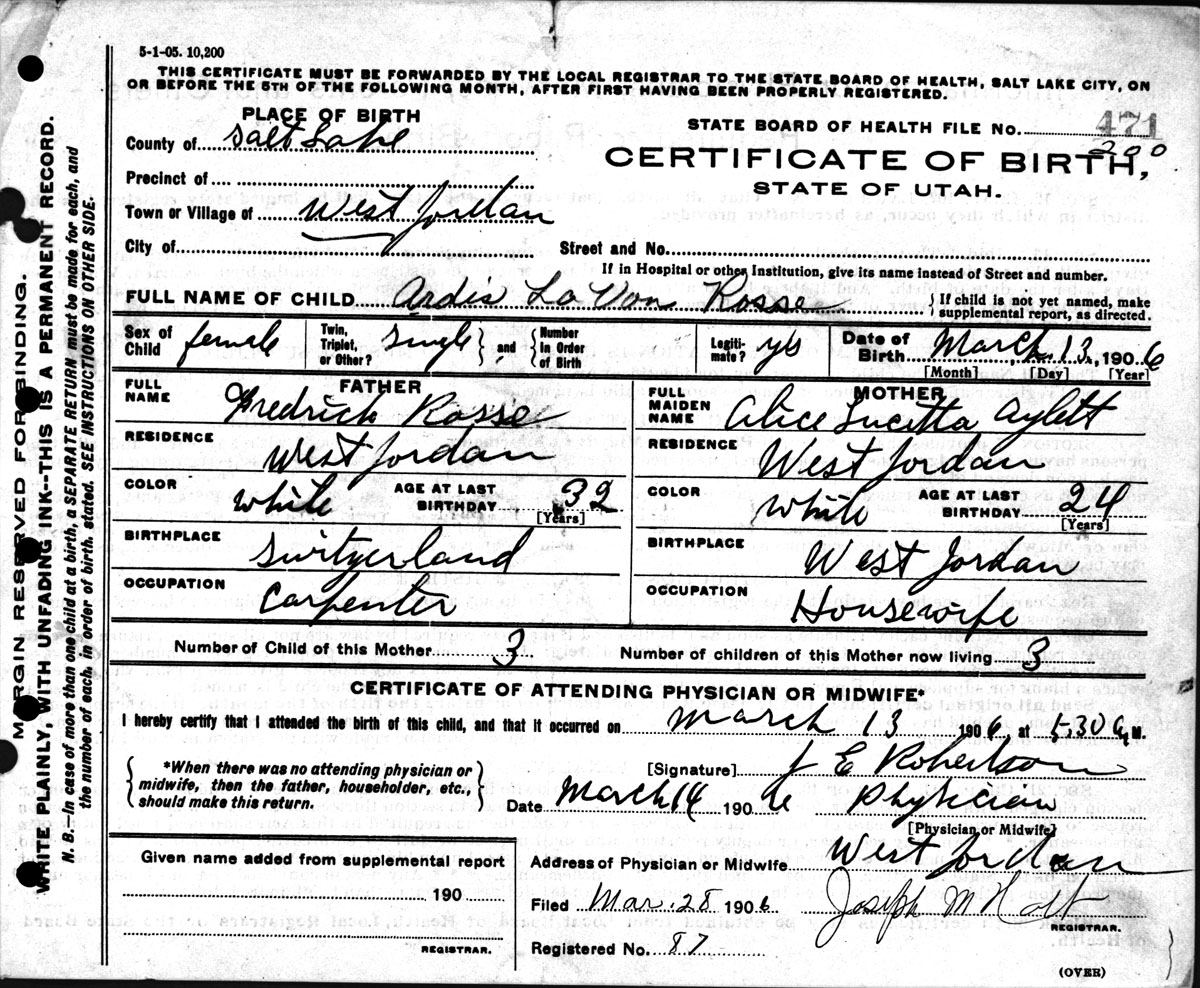 5-1-05. 10,200
THIS CERTIFICATE MUST BE FORWARDED BY THE LOCAL REGISTRAR TO THE STATE BOARD OF HEALTH, SALT LAKE CITY, ON
OR BEFORE THE 5TH OF THE FOLLOWING MONTH, AFTER FIRST HAVING BEEN PROPERLY REGISTERED.
PLACE OF BIRTH
County of Salt Lake
STATE BOARD OF HEALTH FILE No. 471
200
CERTIFICATE OF BIRTH,
STATE OF UTAH.
Precinct of
Town or Village of West Jordan
City of Street and No.
If in Hospital or other Institution, give its name instead of Street and number.
FULL NAME OF CHILD Ardis La Von Rosse { If child is not yet named, make
supplemental report, as directed.
Sex of Child female
Twin, Triplet, or Other? single { and } Number in Order of Birth
Legitimate? yes
Date of Birth March 13, 1906
[Month] [Day] [Year]
FATHER
FULL NAME Fredrick Rosse
RESIDENCE West Jordan
COLOR White AGE AT LAST BIRTHDAY 32
[Years]
BIRTHPLACE Switzerland
OCCUPATION Carpenter
MOTHER
FULL MAIDEN NAME Alice Lucitta Aylett
RESIDENCE West Jordan
COLOR White AGE AT LAST BIRTHDAY 24
[Years]
BIRTHPLACE West Jordan
OCCUPATION Housewife
Number of Child of this Mother 3 Number of children of this Mother now living 3
CERTIFICATE OF ATTENDING PHYSICIAN OR MIDWIFE*
I hereby certify that I attended the birth of this child, and that it occurred on March 13 1906, at 5:30 A.M.
{ *When there was no attending physician or
midwife, then the father, householder, etc.,
should make this return. }
[Signature] J E Robertson
Date March 14 1906 Physician
[Physician or Midwife]
Given name added from supplemental report
190
REGISTRAR.
Address of Physician or Midwife West Jordan
Filed Mar. 28 1906 Joseph M Holt
REGISTRAR.
Registered No. 87
(OVER)
MARGIN RESERVED FOR BINDING.
WRITE PLAINLY, WITH UNFADING INK--THIS IS A PERMANENT RECORD.
N. B.—In case of more than one child at a birth, a SEPARATE RETURN must be made for each, and
the number of each, in order of birth, stated. SEE INSTRUCTIONS ON OTHER SIDE.